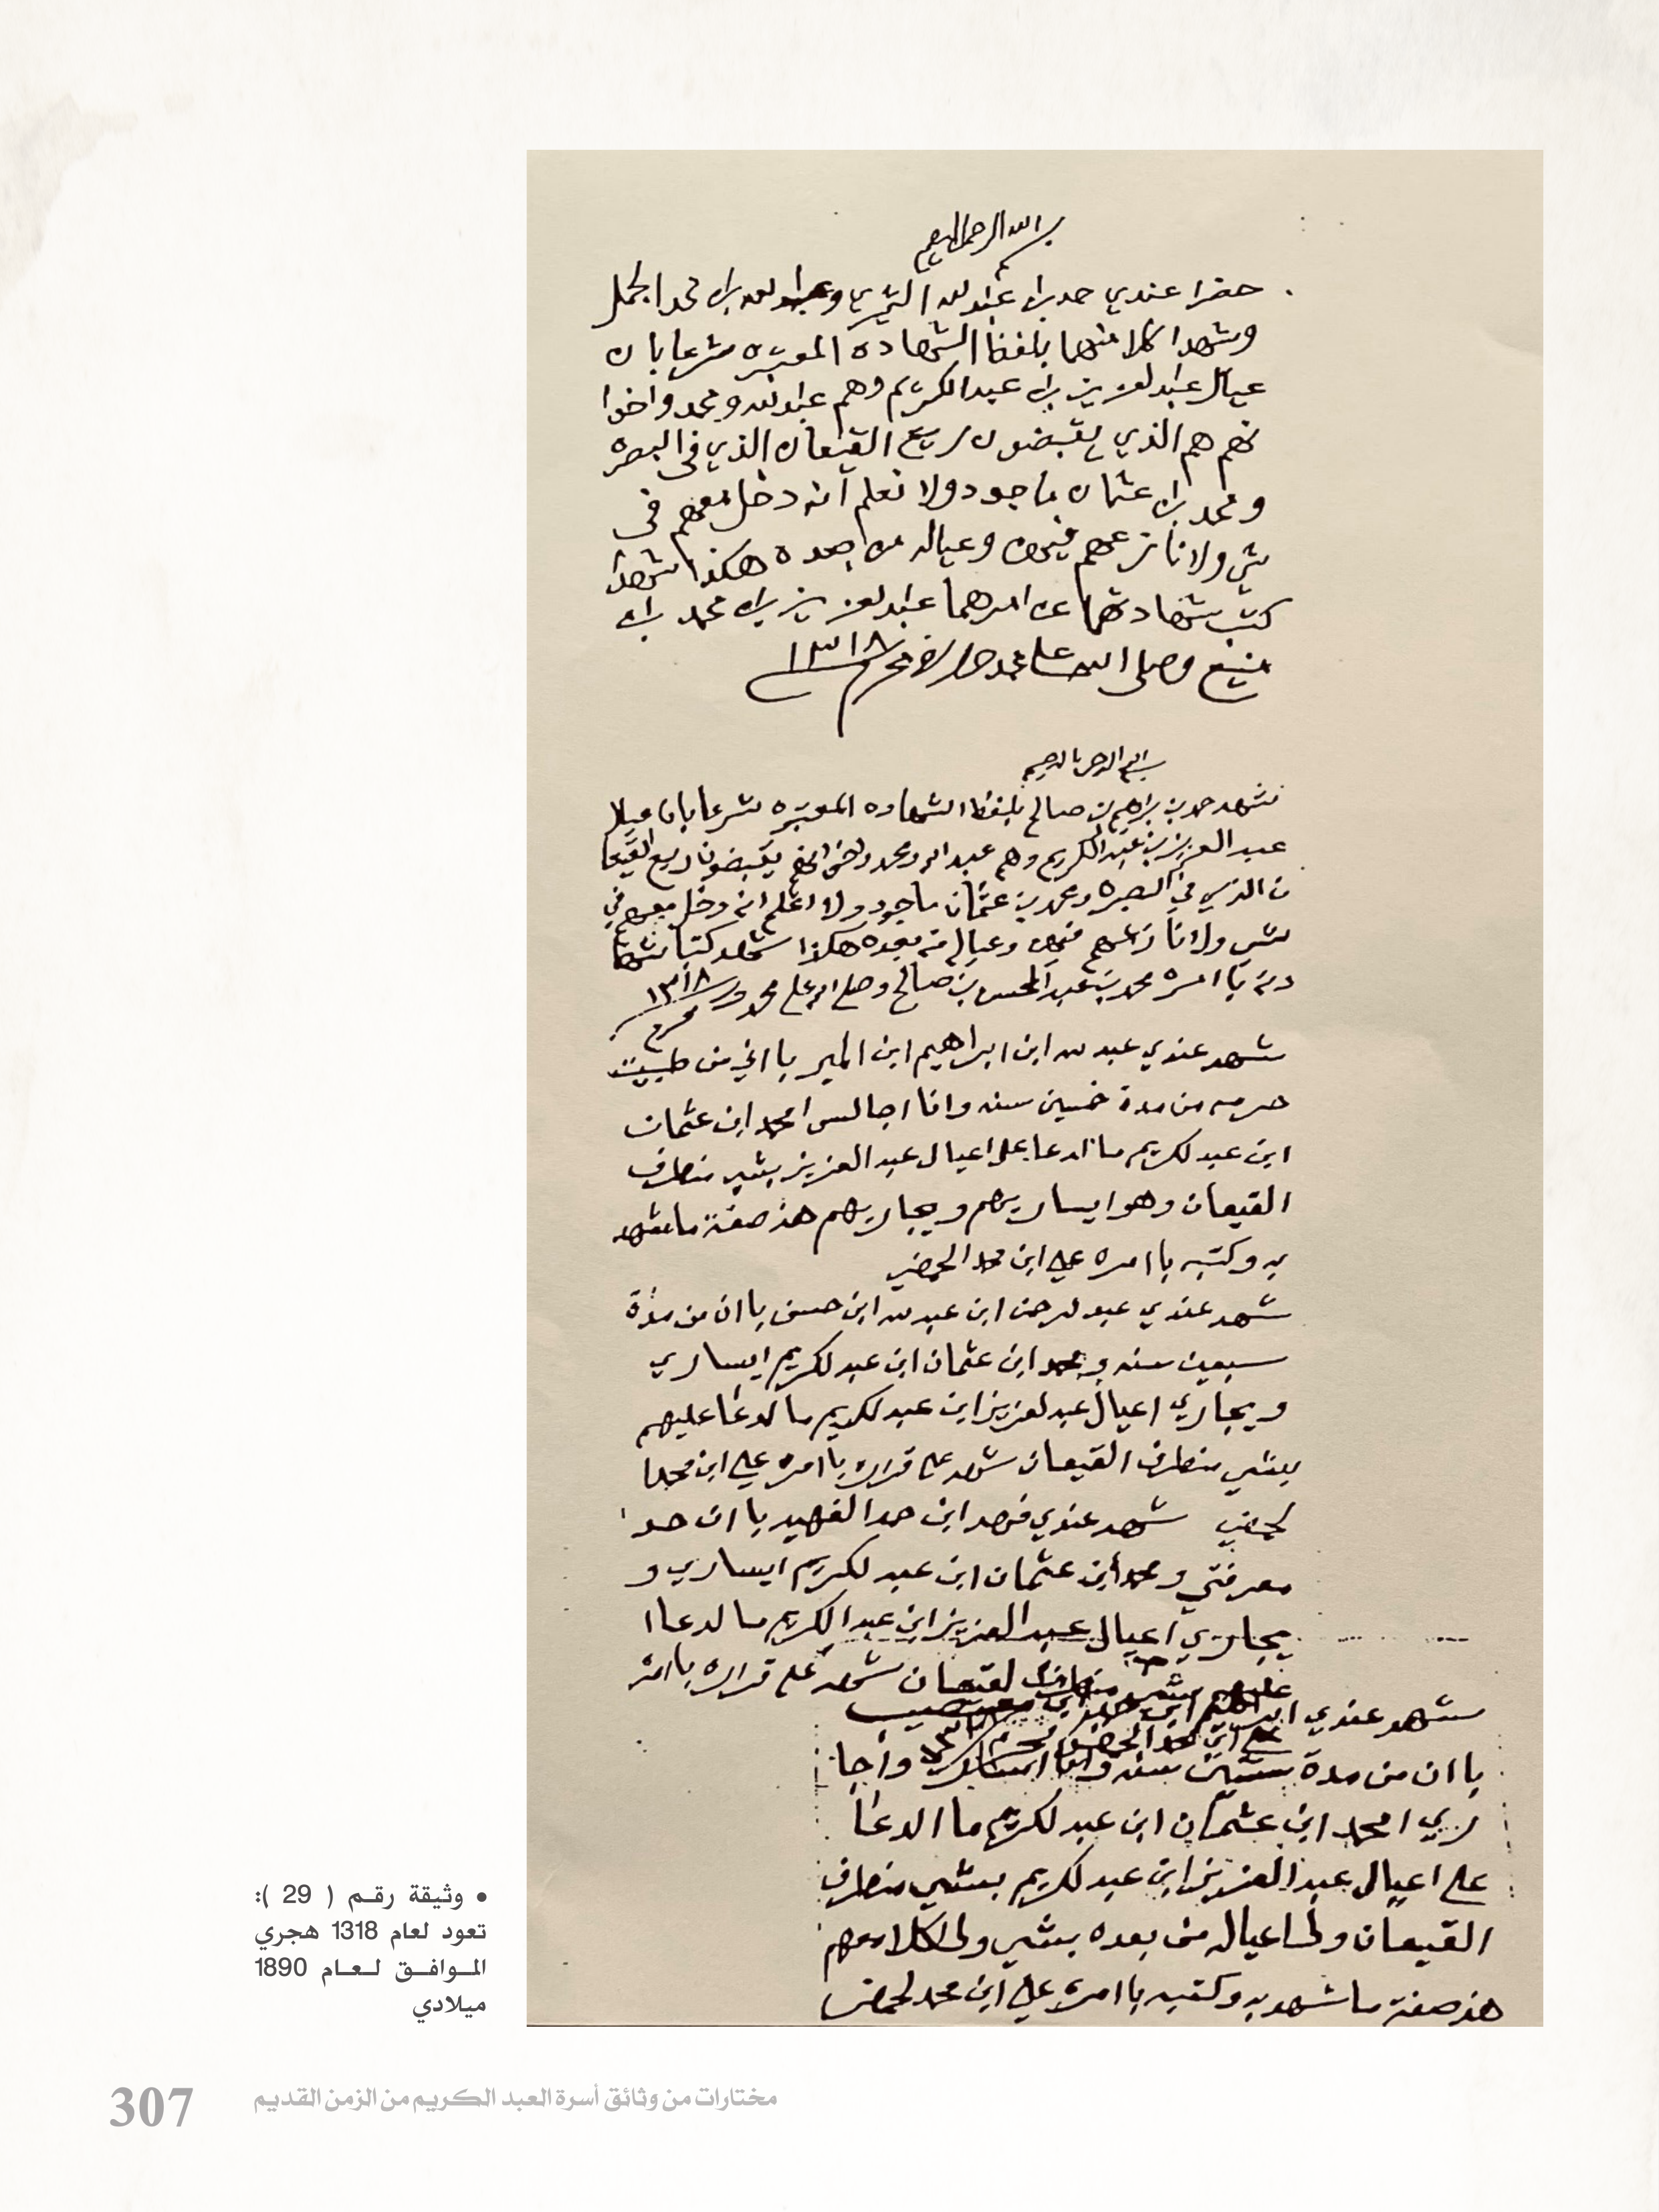 بسم الله الرحمن الرحيم
حضرا عندي حمد بن عبدالله وعبدالله بن محمد الجمل
وشهدا كلا منهما بلفظ الشهاده المعتبره شرعا بان
عيال عبدالعزيز بن عبدالكريم وهم عبدالله ومحمد واخوا
نهم هم الذي يقبضون ريع القيعان الذي في البصره
ومحمد بن عثمان ماجود ولا نعلم انه دخل معهم في
شي ولا نازعهم فيهن وعياله من بعده هكذا شهدا
كتب شهادتهما عن امرهما عبدالعزيز بن محمد بن
منيع وصلى الله على محمد محرم ١٣١٨
بسم الله الرحمن الرحيم
شهد حمد بن براهيم بن صالح بلفظ الشهاده المعتبره شرعا بان عيال
عبد العزيز بن عبد الكريم وهم عبد الله ومحمد واخوانهم يقبضون ريع القيعا
ن الذي في البصره ومحمد بن عثمان ماجود ولا اعلم انه دخل معهم في
شي ولا نازعهم فيهن وعياله من بعده هكذا شهد كتب شها
دته بامره محمد بن عبد المحسن بن صالح وصلى الله على محمد ١٣١٨
محرم
شهد عندي عبدلله ابن ابراهيم ابن با اني من
من مدة خمسين سنه وانا اجالس امحمد ابن عثمان
ابن عبد لكريم ما ادعا على اعيال عبد العزيز بشي منطرف
القيعان وهو ايساريهم ويجاريهم هذ صفة ما شهد
به وكتبه با امره علي ابن محمد الحمضي
شهد عندي عبد لرحمن ابن عبد لله ابن حسن با ان من مدة
سبعين سنه ومحمد ابن عثمان ابن عبد لكريم ايساري
ويجاري اعيال عبد لعزيز ابن عبد لكريم ما الدعا عليهم
بشي منطرف القيعان شهد على قراره با امره علي ابن محمد ا
لحمضي شهد عندي فهد ابن حمد الفهيد با ان حد
معرفتي ومحمد ابن عثمان ابن عبد لكريم ايساري و
يجاري اعيال عبد العزيز ابن عبد الكريم ما لدعا ا
عليهم بشي منطرف لقيعان شهد على قراره با امره
علي ابن محمد الحمضي
شهد عندي ابراهيم ابن
با ان من مدة ستين سنه وانا واجا
ري امحمد ابن عثمان ابن عبد لكريم ما الدعا
على اعيال عبد العزيز ابن عبد لكريم بشي منطرف
القيعان ولا عياله من بعده بشي
هذ صفة ما شهد به وكتبه با امره علي ابن محمد لحمضي
• وثيقة رقم ( 29 ):
تعود لعام 1318 هجري
الموافق لعام 1890
ميلادي
مختارات من وثائق أسرة العبد الكريم من الزمن القديم
307